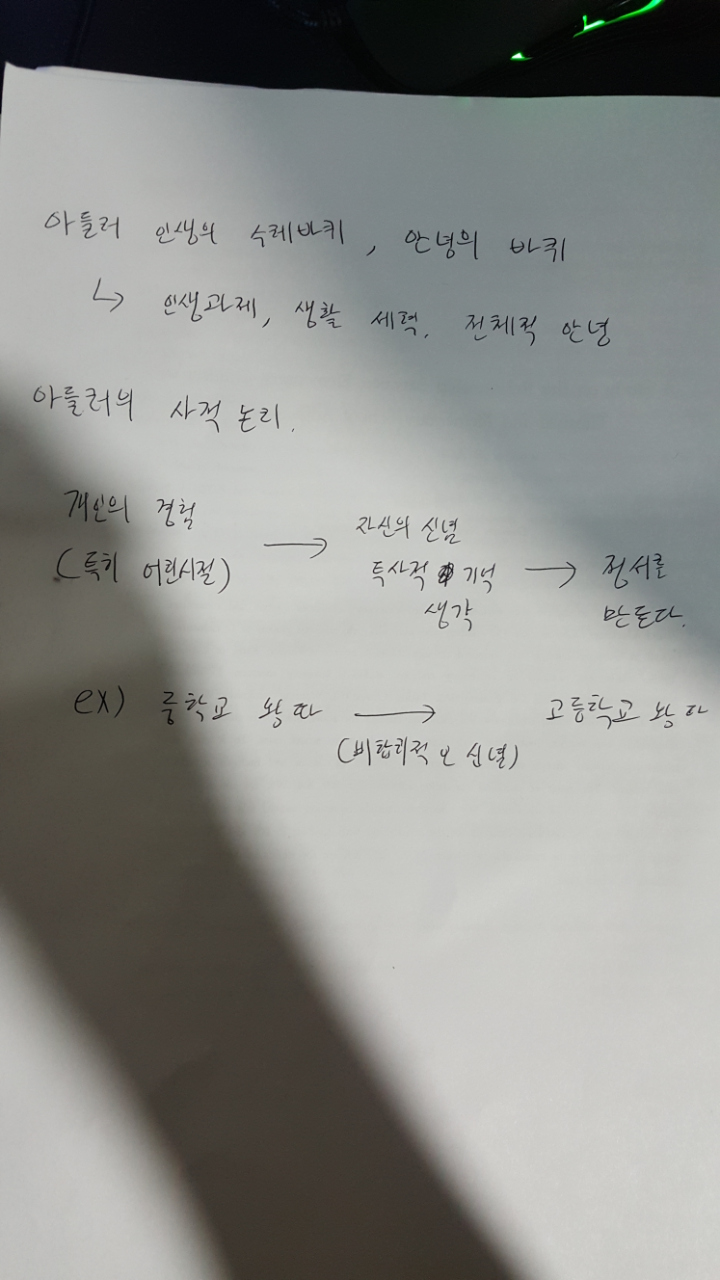 아들러 인생의 수레바퀴, 안녕의 바퀴
↳ 인생과제, 생활 세력, 전체적 안녕
아들러의 사적 논리.
개인의 경험
(특히 어린시절)
→
자신의 신념
특사적 기억
생각
→
정서를
만든다.
ex) 중학교 왕따 → 고등학교 왕따
(비합리적 신념)